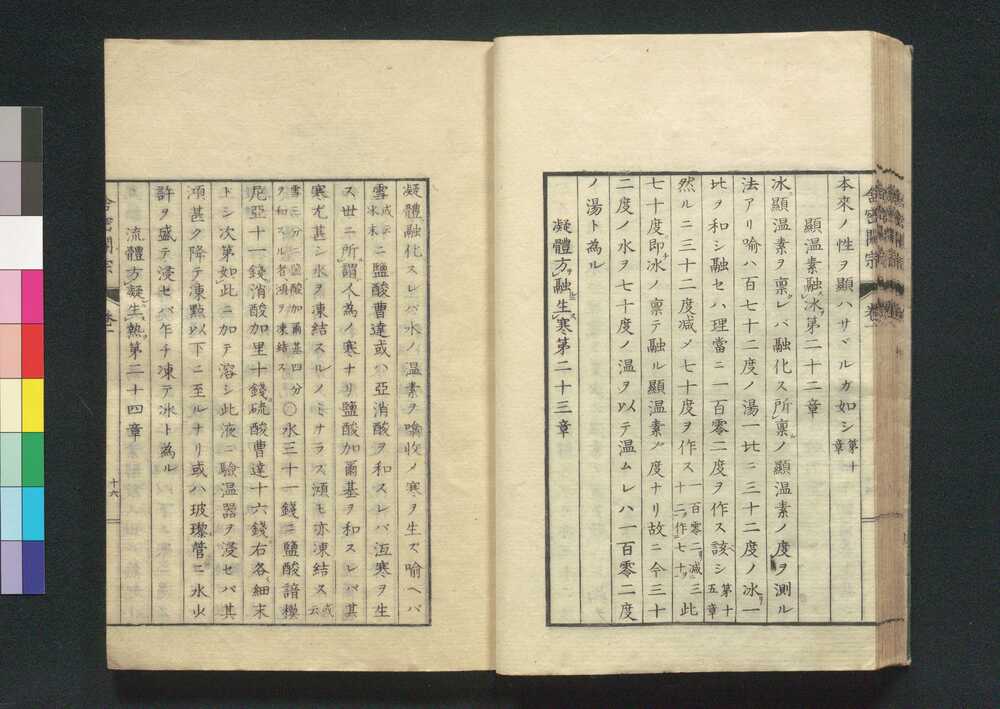 舎密開宗 巻一
本來ノ性ヲ顯ハサヾルガ如シ第十章
顯温素融冰第二十二章
冰顯温素ヲ稟レバ融化ス所稟ノ顯温素ノ度ヲ測ル
法アリ喻ハ百七十二度ノ湯一比ニ三十二度ノ冰一
比ヲ和シ融セハ理當ニ一百零二度ヲ作ス該シ第十五章
然ルニ三十二度减メ七十度ヲ作ス一百零二减三十二作七十此
七十度即冰ノ稟テ融ル顯温素ノ度ナリ故ニ令三十
二度ノ水ヲ七十度ノ温ヲ以テ温ムレハ一百零二度
ノ湯ト為ル
凝體方融生寒第二十三章
凝體融化スレバ水ノ温素ヲ噏收ノ寒ヲ生ズ喻ヘバ
雪或ハ冰末ニ鹽酸曹達或ハ亞消酸ヲ和スレバ沍寒ヲ生
ス世ニ所謂人為ノ寒ナリ鹽酸加爾基ヲ和スレバ其
寒尤甚シ水ヲ凍結スルノミナラズ澒モ亦凍結ス或云
雪三分ニ鹽酸加爾基四分ヲ和スル者澒ヲ凍結ス〇水三十一錢ニ鹽酸諳模
尼亞十一錢消酸加里十錢硫酸曹達十六錢右各細末
トシ次第如此ニ加テ溶シ此液ニ驗温器ヲ浸セバ其
澒甚ク降テ凍點以下ニ至ルナリ或ハ玻瓈管ニ水少
許ヲ盛テ浸セバ乍チ凍テ冰ト為ル
流體方凝生熱第二十四章
舎密開宗 巻一 十六